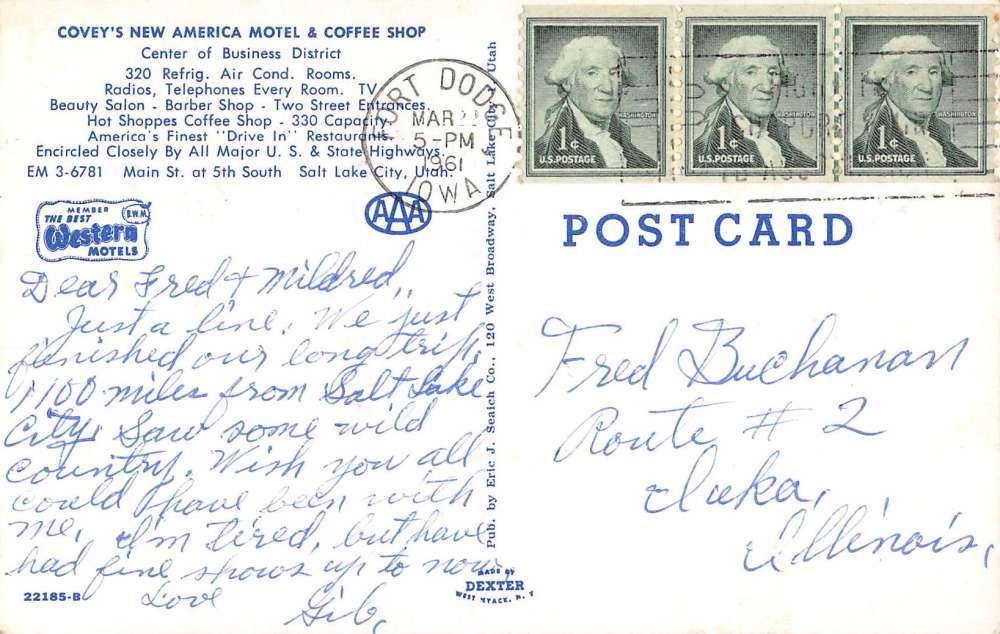 COVEY'S NEW AMERICA MOTEL & COFFEE SHOP
Center of Business District
320 Refrig. Air Cond. Rooms.
Radios, Telephones Every Room. TV
Beauty Salon - Barber Shop - Two Street Entrances.
Hot Shoppes Coffee Shop - 330 Capacity.
America's Finest "Drive In" Restaurants.
Encircled Closely By All Major U. S. & State Highways.
EM 3-6781 Main St. at 5th South Salt Lake City, Utah.
MEMBER
THE BEST B.W.M.
Western
MOTELS
AAA
FORT DODGE
MAR
5-PM
1961
IOWA
WASHINGTON
1¢
U.S. POSTAGE
WASHINGTON
1¢
U.S. POSTAGE
WASHINGTON
1¢
U.S. POSTAGE
POST CARD
Dear Fred & Mildred,
Just a line. We just
finished our long trip,
1100 miles from Salt Lake
City. Saw some wild
country. Wish you all
could have been with
me, I'm tired, but have
had fine shows up to now
Love
Gib,
22185-B
Pub. by Eric J. Seaich Co., 120 West Broadway, Salt Lake City, Utah
MADE BY
DEXTER
WEST NYACK, N. Y.
Fred Buchanan
Route # 2
Iuka,
Illinois,